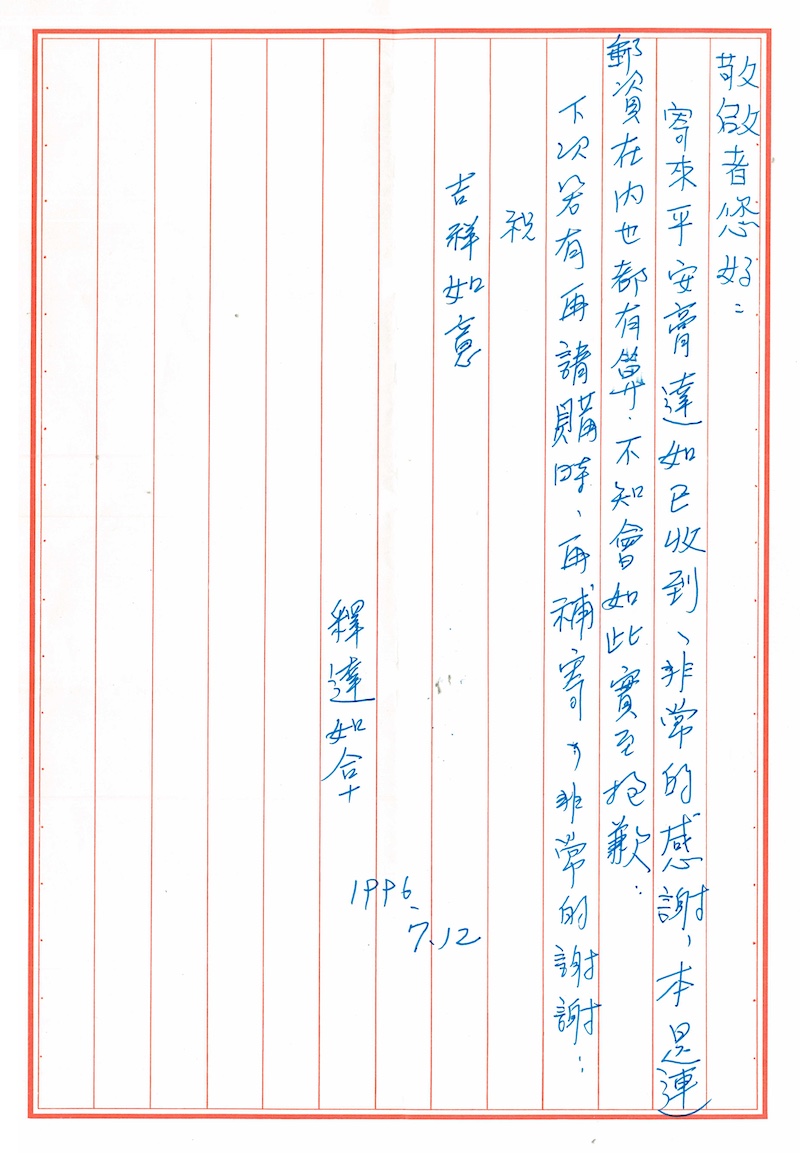 敬啟者您好：
寄來平安膏達如已收到、非常的感謝，本是連
郵資在內也都有算．不知會如此實至抱歉：
下次若有再請購時、再補寄，非常的謝謝：
祝
吉祥如意
釋達如合十
1996.
7.12